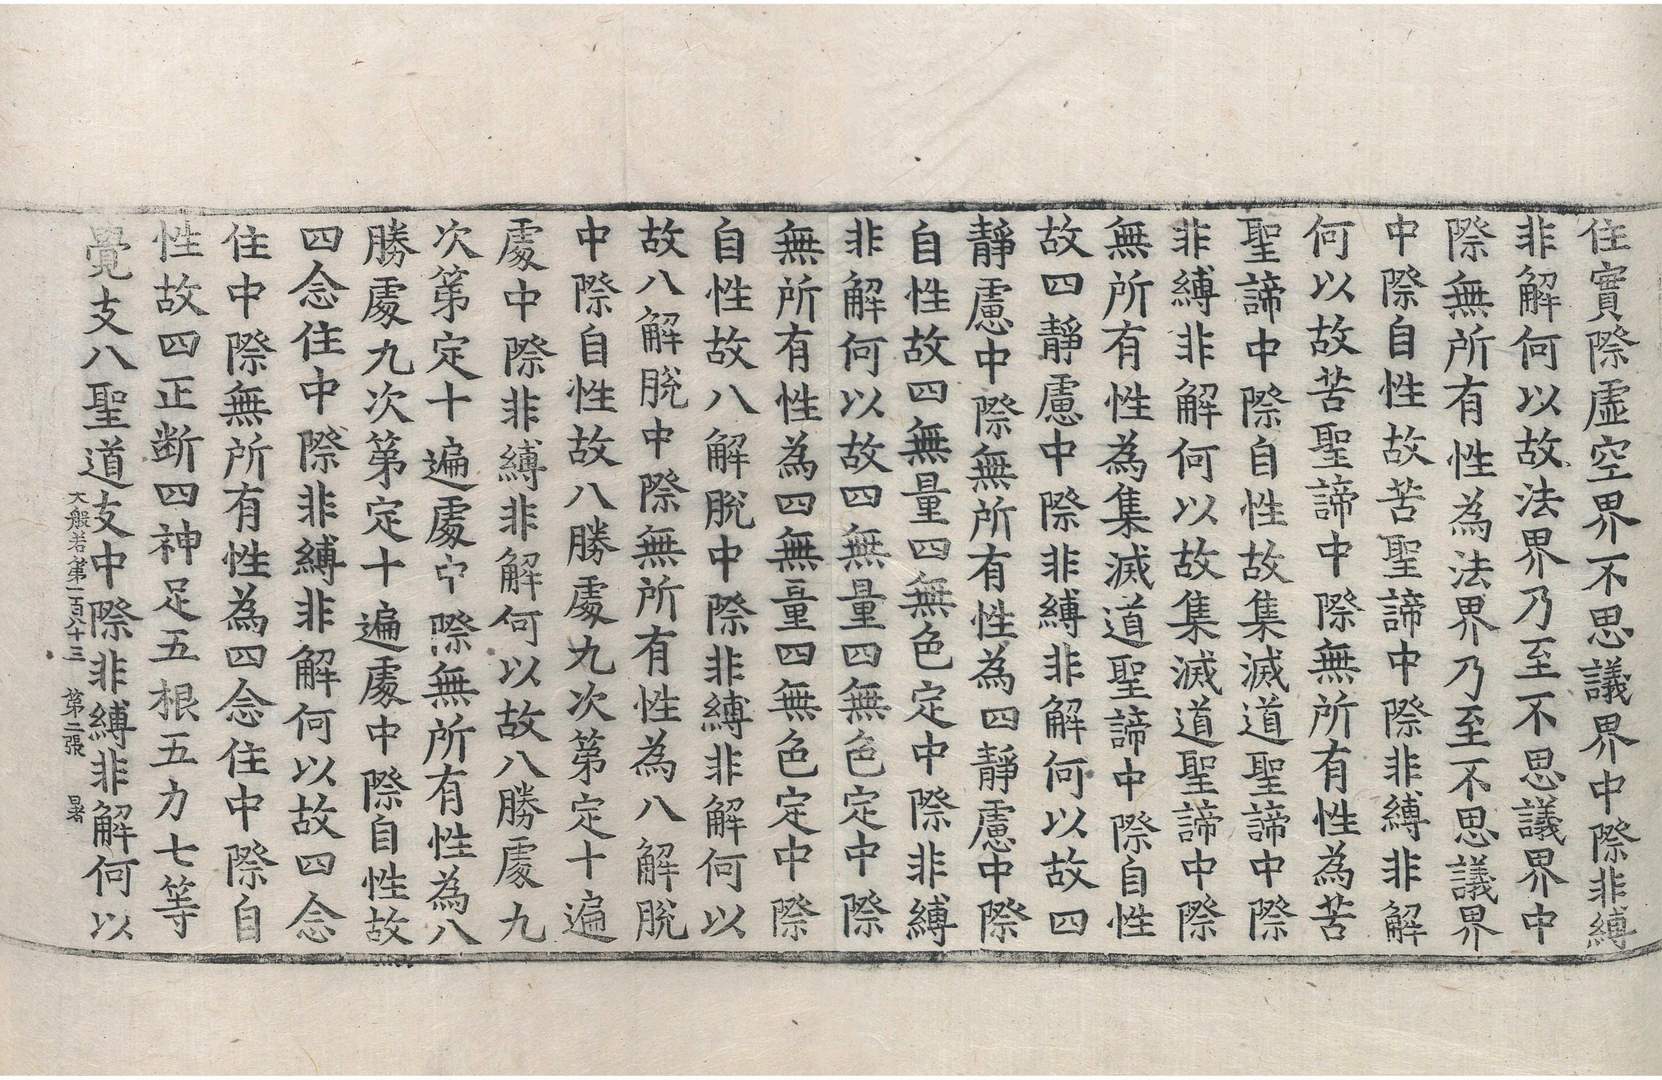 住實際虛空界不思議界中際非縛
非解何以故法界乃至不思議界中
際無所有性為法界乃至不思議界
中際自性故苦聖諦中際非縛非解
何以故苦聖諦中際無所有性為苦
聖諦中際自性故集滅道聖諦中際
非縛非解何以故集滅道聖諦中際
無所有性為集滅道聖諦中際自性
故四靜慮中際非縛非解何以故四
靜慮中際無所有性為四靜慮中際
自性故四無量四無色定中際非縛
非解何以故四無量四無色定中際
無所有性為四無量四無色定中際
自性故八解脫中際非縛非解何以
故八解脫中際無所有性為八解脫
中際自性故八勝處九次第定十遍
處中際非縛非解何以故八勝處九
次第定十遍處中際無所有性為八
勝處九次第定十遍處中際自性故
四念住中際非縛非解何以故四念
住中際無所有性為四念住中際自
性故四正断四神足五根五力七等
覺支八聖道支中際非縛非解何以
大般若第一百八十三 第二張 署